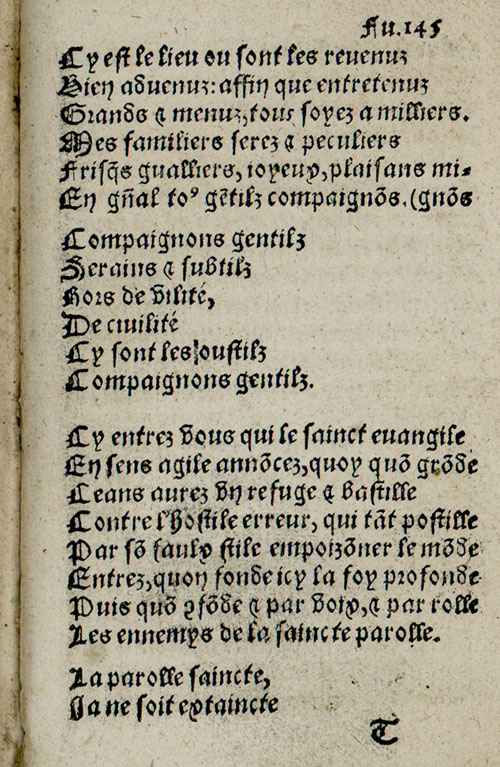 Fu.145
Cy est le lieu ou sont les reuenuz
Bien aduenuz: affin que entretenuz
Grands ⁊ menuz, tous soyez a milliers.
Mes familiers serez ⁊ peculiers
Frisqs gualliers, ioyeux, plaisans mi-
En gñal toꝰ gẽtilz compaignõs. (gnõs
Compaignons gentilz
Serains ⁊ subtilz
Hors de vilité,
De ciuilité
Cy sont les oustilz
Compaignons gentilz.
Cy entrez vous qui le sainct euangile
En sens agile annõcez, quoy quõ grõde
Ceans aurez vn refuge ⁊ bastille
Contre l'hostile erreur, qui tãt postille
Par sõ faulx stile empoizõner le mõde
Entrez, quon fonde icy la foy profonde
Puis quõ ꝯfõde ⁊ par voix, ⁊ par rolle
Les ennemys de la saincte parolle.
La parolle saincte,
Ja ne soit extaincte
T